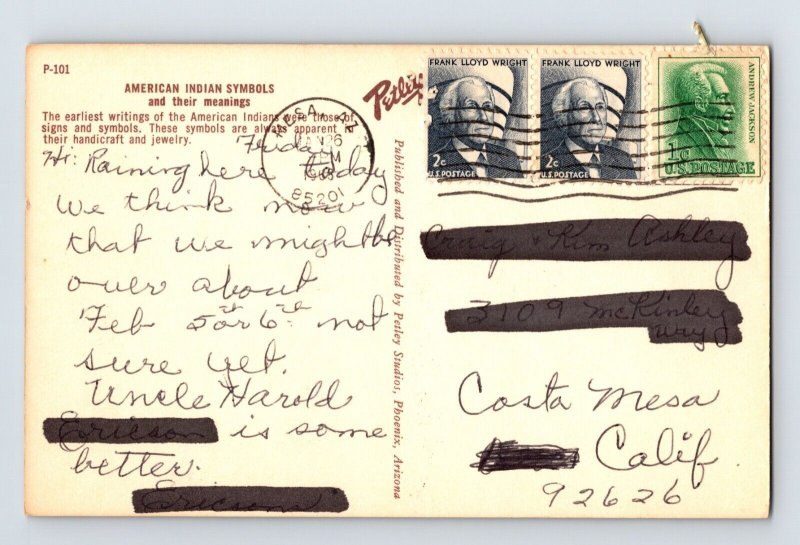 P-101
AMERICAN INDIAN SYMBOLS
and their meanings
The earliest writings of the American Indians were those of
signs and symbols. These symbols are always apparent in
their handicraft and jewelry.
Friday
Hi: Raining here today
we think now
that we might be
over about
Feb 5th or 6th not
sure yet.
Uncle Harold
is some
better.
Petley
Published and Distributed by Petley Studios, Phoenix, Arizona
MESA, AZ
PM
85201
FRANK LLOYD WRIGHT
2c
U.S. POSTAGE
FRANK LLOYD WRIGHT
2c
U.S. POSTAGE
ANDREW JACKSON
1c
U.S. POSTAGE
Costa Mesa
Calif
92626